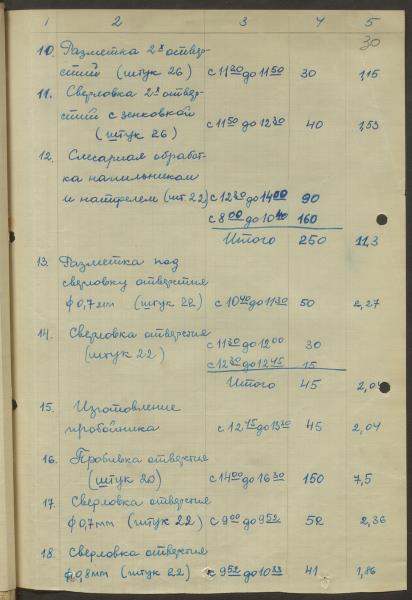 1 2 3 4 5
30
10. Разметка 2х отвер-
стий (штук 26) с 11 20 до 11 50 30 1,15
11. Сверловка 2х отвер-
стий с зенковкой
(штук 26) с 11 50 до 12 30 40 1,53
12. Слесарная обработ-
ка напильником
и надфелем (шт. 22) с 12 30 до 14 00 90
с 8 00 до 10 40 160
Итого 250 11,3
13. Разметка под
сверловку отверстия
ф 0,7мм (штук 22) с 10 40 до 11 30 50 2,27
14. Сверловка отверстия
(штук 22) с 11 30 до 12 00 30
с 12 30 до 12 45 15
Итого 45 2,04
15. Изготовление
пробойника с 12 45 до 13 30 45 2,04
16. Пробивка отверстия
(штук 20) с 14 00 до 16 30 150 7,5
17. Сверловка отверстия
ф 0,7мм (штук 22) с 9 00 до 9 52 52 2,36
18. Сверловка отверстия
ф 0,8мм (штук 22) с 9 52 до 10 33 41 1,86